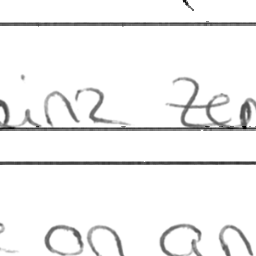 einz Zen
e on an